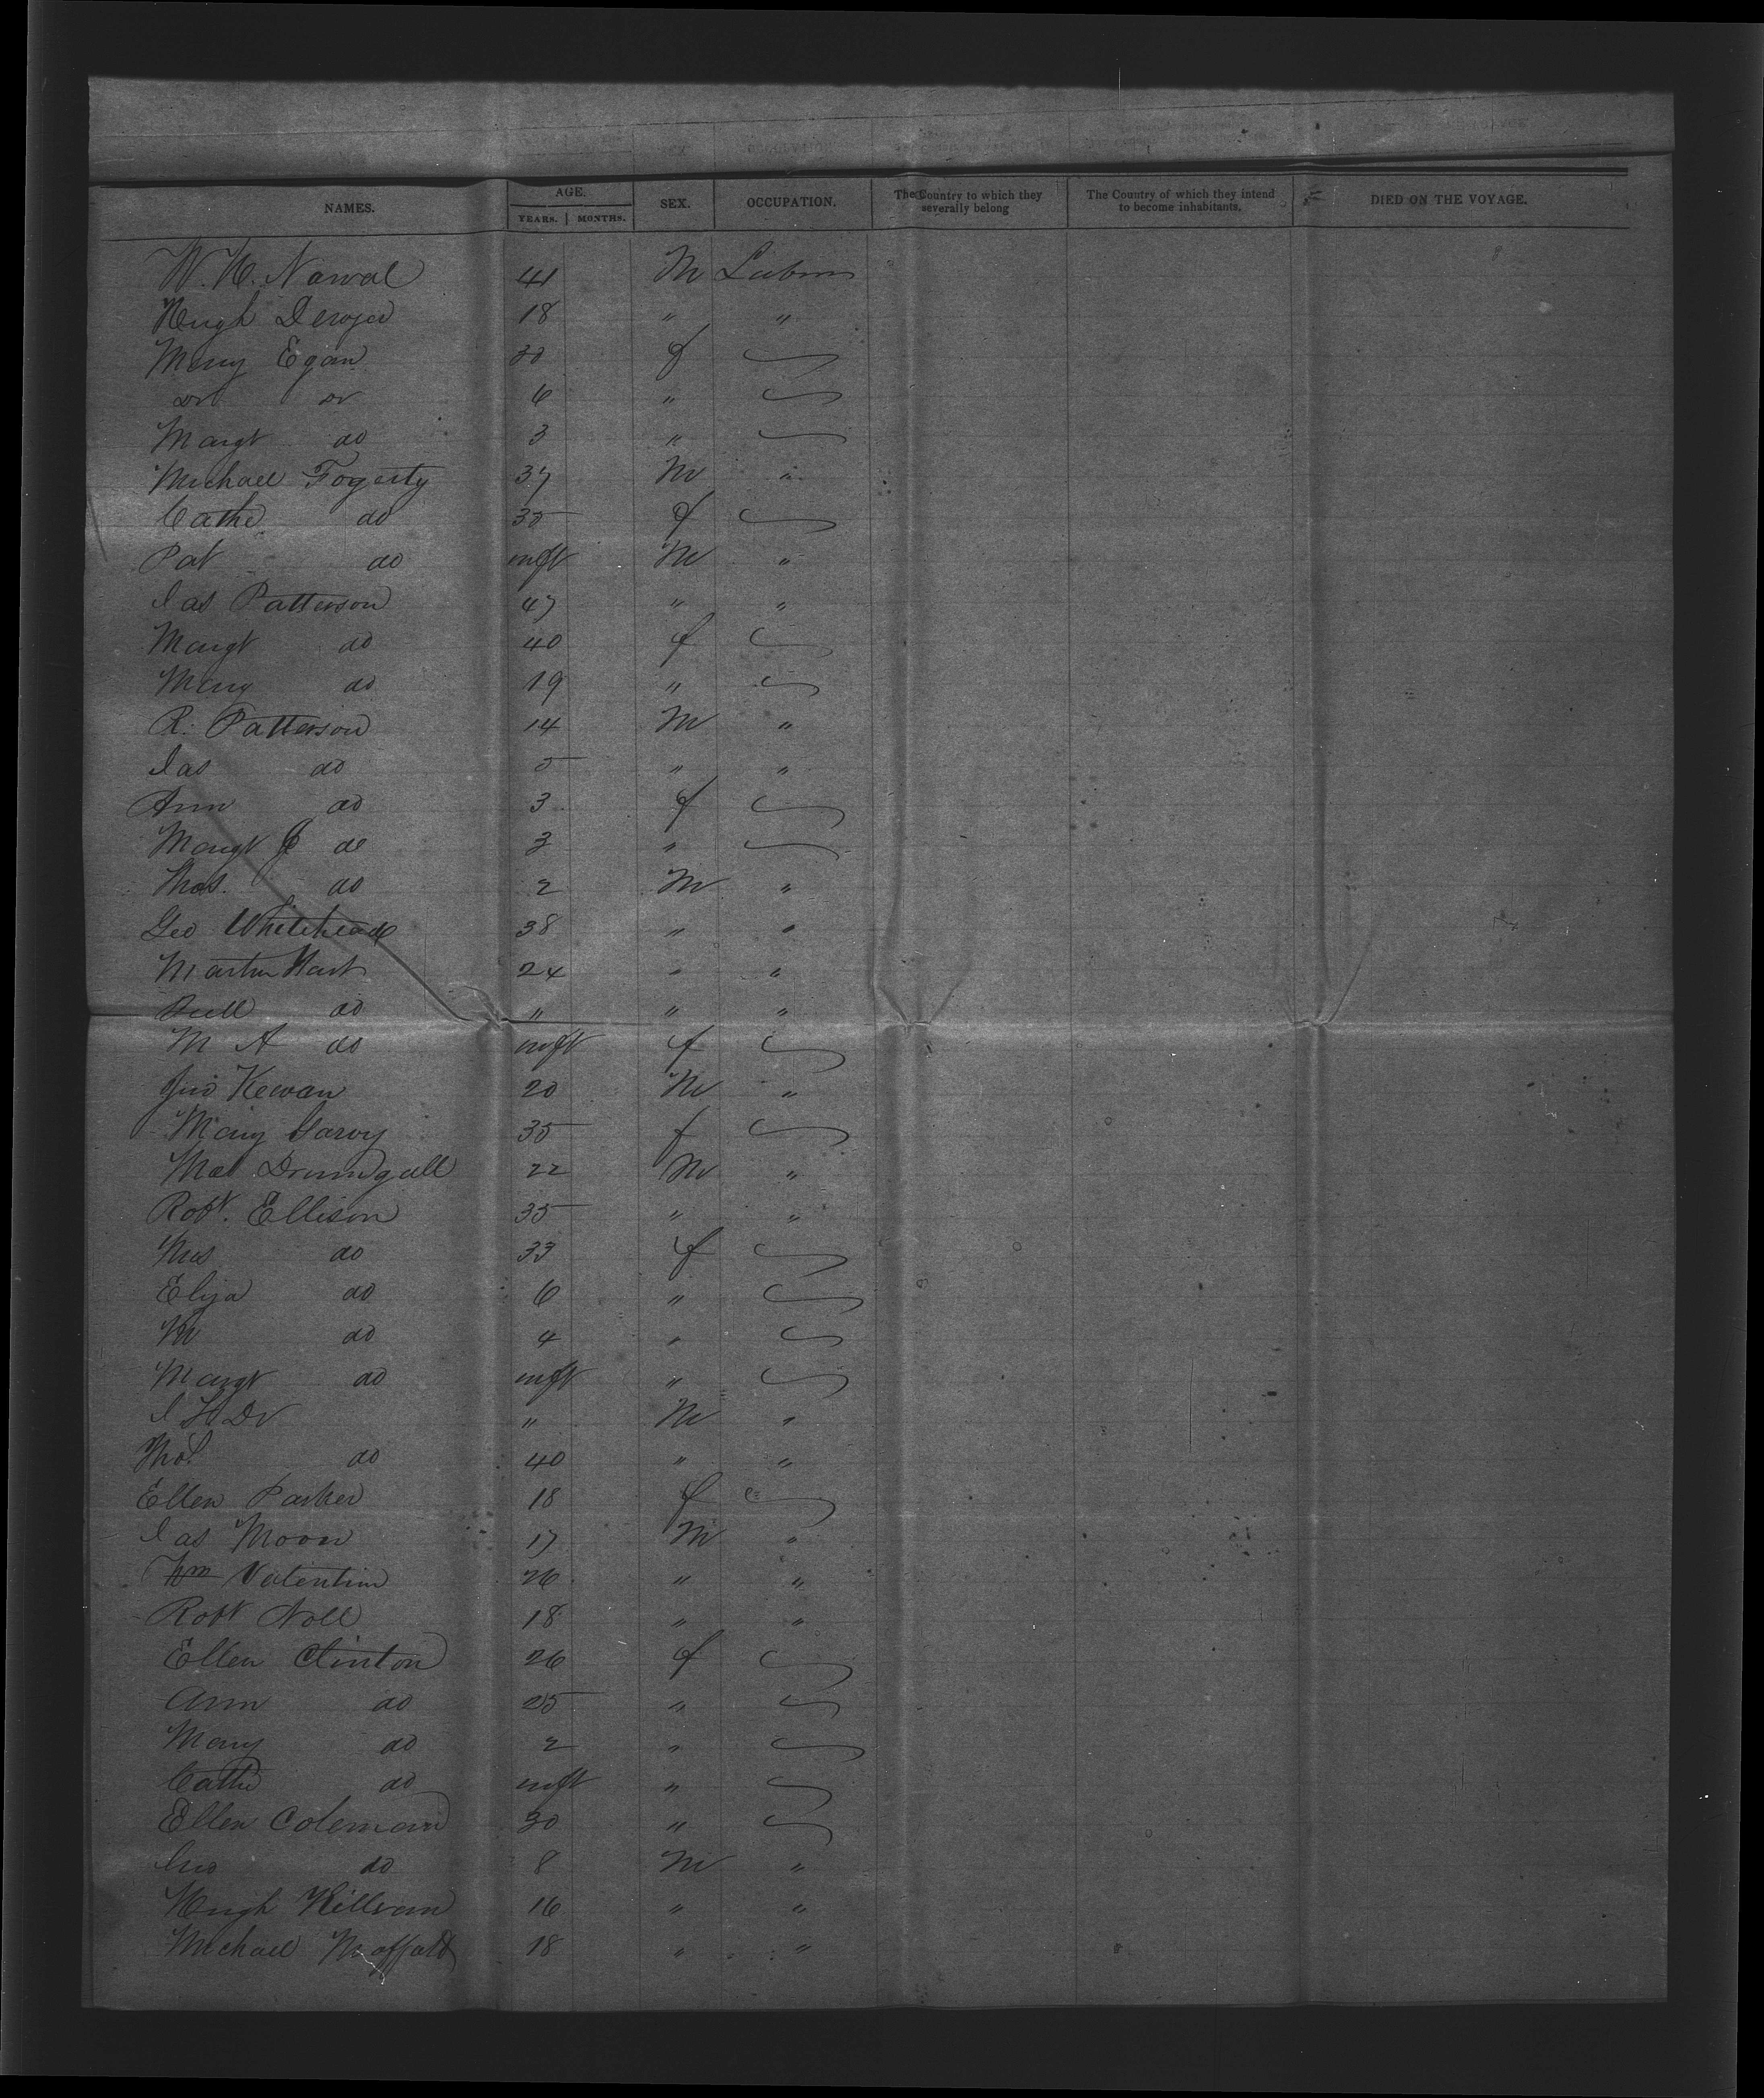 NAMES. AGE. YEARS. MONTHS. SEX. OCCUPATION. The Country to which they severally belong The Country of which they intend to become inhabitants. DIED ON THE VOYAGE.
W. H. Nawal 41 M Labour
Hugh 18 " "
Mary Egan 30 f
do do 6 "
Margt do 3 "
Michael Fogerty 37 M "
Cathe do 35 f
Pat do inft M "
Jas Patterson 47 " "
Margt do 40 f
Mary do 19 "
R. Patterson 14 M "
Jas do 5 " "
Ann do 3 f
Margt J do 3 "
Thos. do 2 M "
Geo Whitehead 38 " "
Martin Hart 24 " "
do " " "
M A do inft f
Jno Kewan 20 M "
Mary Garvy 35 f
Drumgall 22 M "
Robt. Ellison 35 " "
Mrs do 33 f
Eliza do 6 "
M do 4 "
Margt do inft "
J H Do " M "
Thos do 40 " "
Ellen Parker 18 f
Jas Moon 17 M "
Wm Valentine 26 " "
Robt Noll 18 " "
Ellen Clinton 26 f
Ann do 25 "
Mary do 2 "
Cathe do inft "
Ellen Coleman 30 "
Jno do 8 M "
Hugh Killvan 16 " "
Michael Moffatt 18 " "